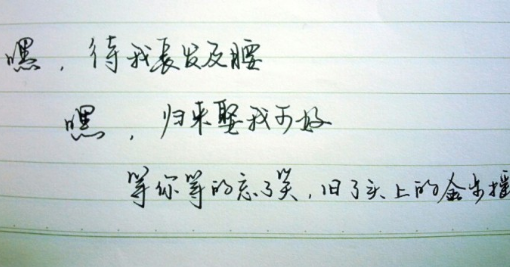 嘿，待我長发及腰
嘿，归来娶我可好
等你等的忘了笑，旧了头上的金步摇